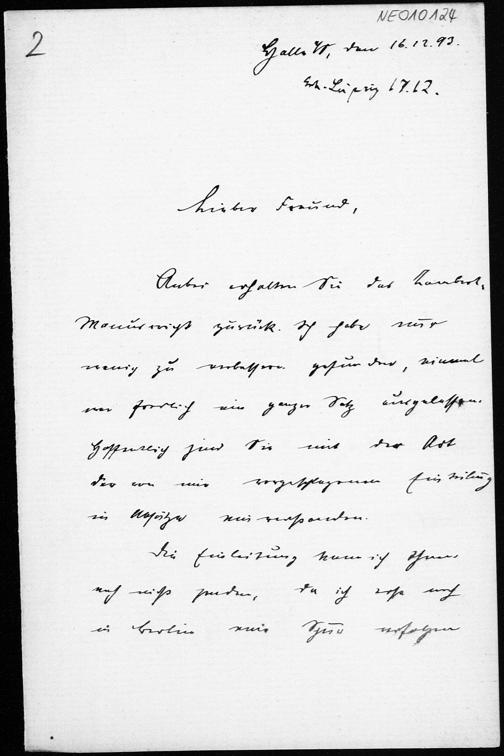 NE010124
2
Halle a/S, den 16.12.93.
Erh. Leipzig 17.12.
Lieber Freund,
Anbei erhalten Sie das Lambert-
Manuscript zurück. Ich habe nur
wenig zu verbessern gefunden, einmal
war freilich ein ganzer Satz ausgelassen.
Hoffentlich sind Sie mit der Art
der von mir vorgeschlagenen Einteilung
in Absätze einverstanden.
Die Einleitung kann ich Ihnen
noch nicht senden, da ich erst noch
in Berlin eine Spur verfolgen